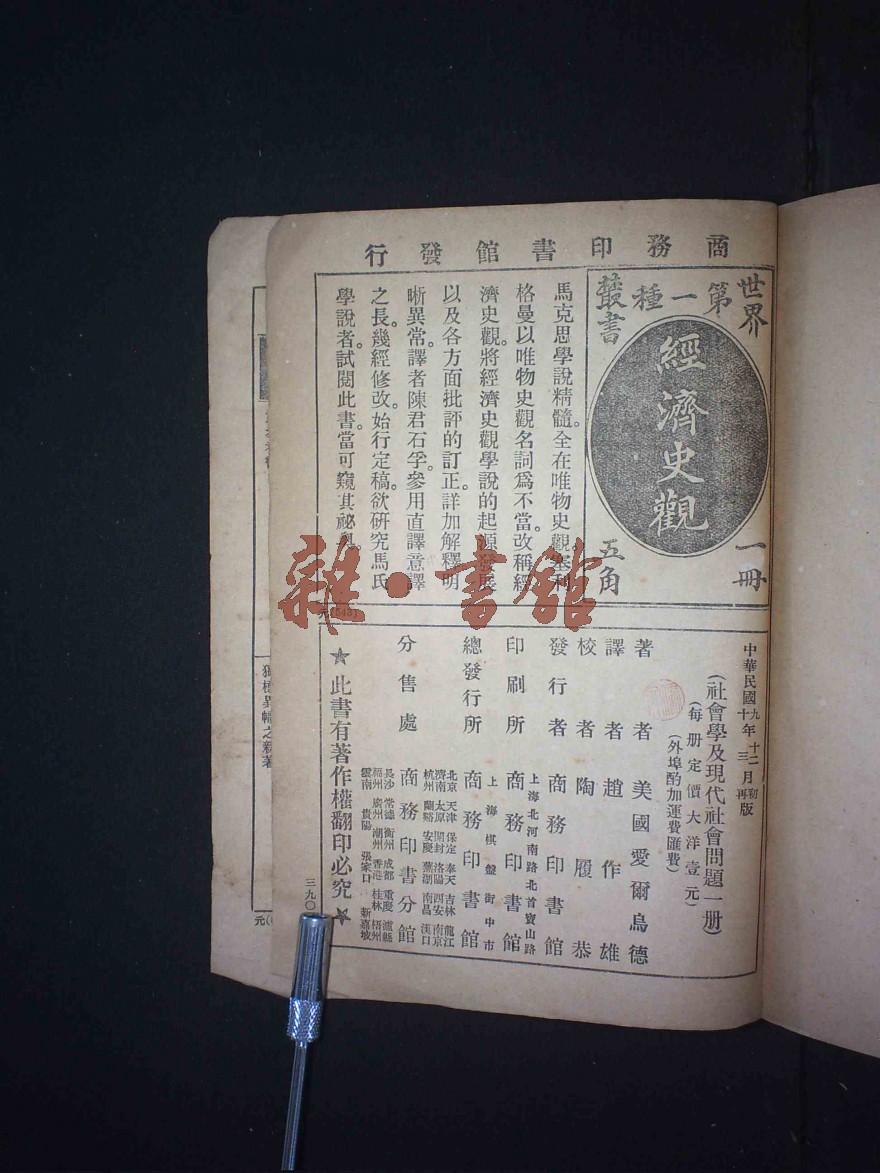 商務印書館發行
世界叢書
第一種
經濟史觀
一冊
五角
馬克思學說精髓。全在唯物史觀。塞利
格曼以唯物史觀名詞爲不當。改稱經
濟史觀。將經濟史觀學說的起源發展
以及各方面批評的訂正。詳加解釋。明
晰異常。譯者陳君石孚。參用直譯意譯
之長。幾經修改。始行定稿。欲研究馬氏
學說者。試閱此書。當可窺其祕奧。
元(543)
中華民國九年十二月初版
十年三月再版
(社會學及現代社會問題一册)
(每册定價大洋壹元)
(外埠酌加運費匯費)
著者 美國愛爾烏德
譯者 趙作雄
校者 陶履恭
發行者 商務印書館
印刷所 上海北河南路北首寶山路 商務印書館
總發行所 上海棋盤街中市 商務印書館
分售處 商務印書分館
北京 天津 保定 奉天 吉林 龍江
濟南 太原 開封 洛陽 西安 南京
杭州 蘭谿 安慶 蕪湖 南昌 漢口
長沙 常德 衡州 成都 重慶 瀘縣
福州 廣州 潮州 香港 桂林 梧州
雲南 貴陽 張家口 新嘉坡
★此書有著作權翻印必究★
三九〇
之新著
元(
雜·書館